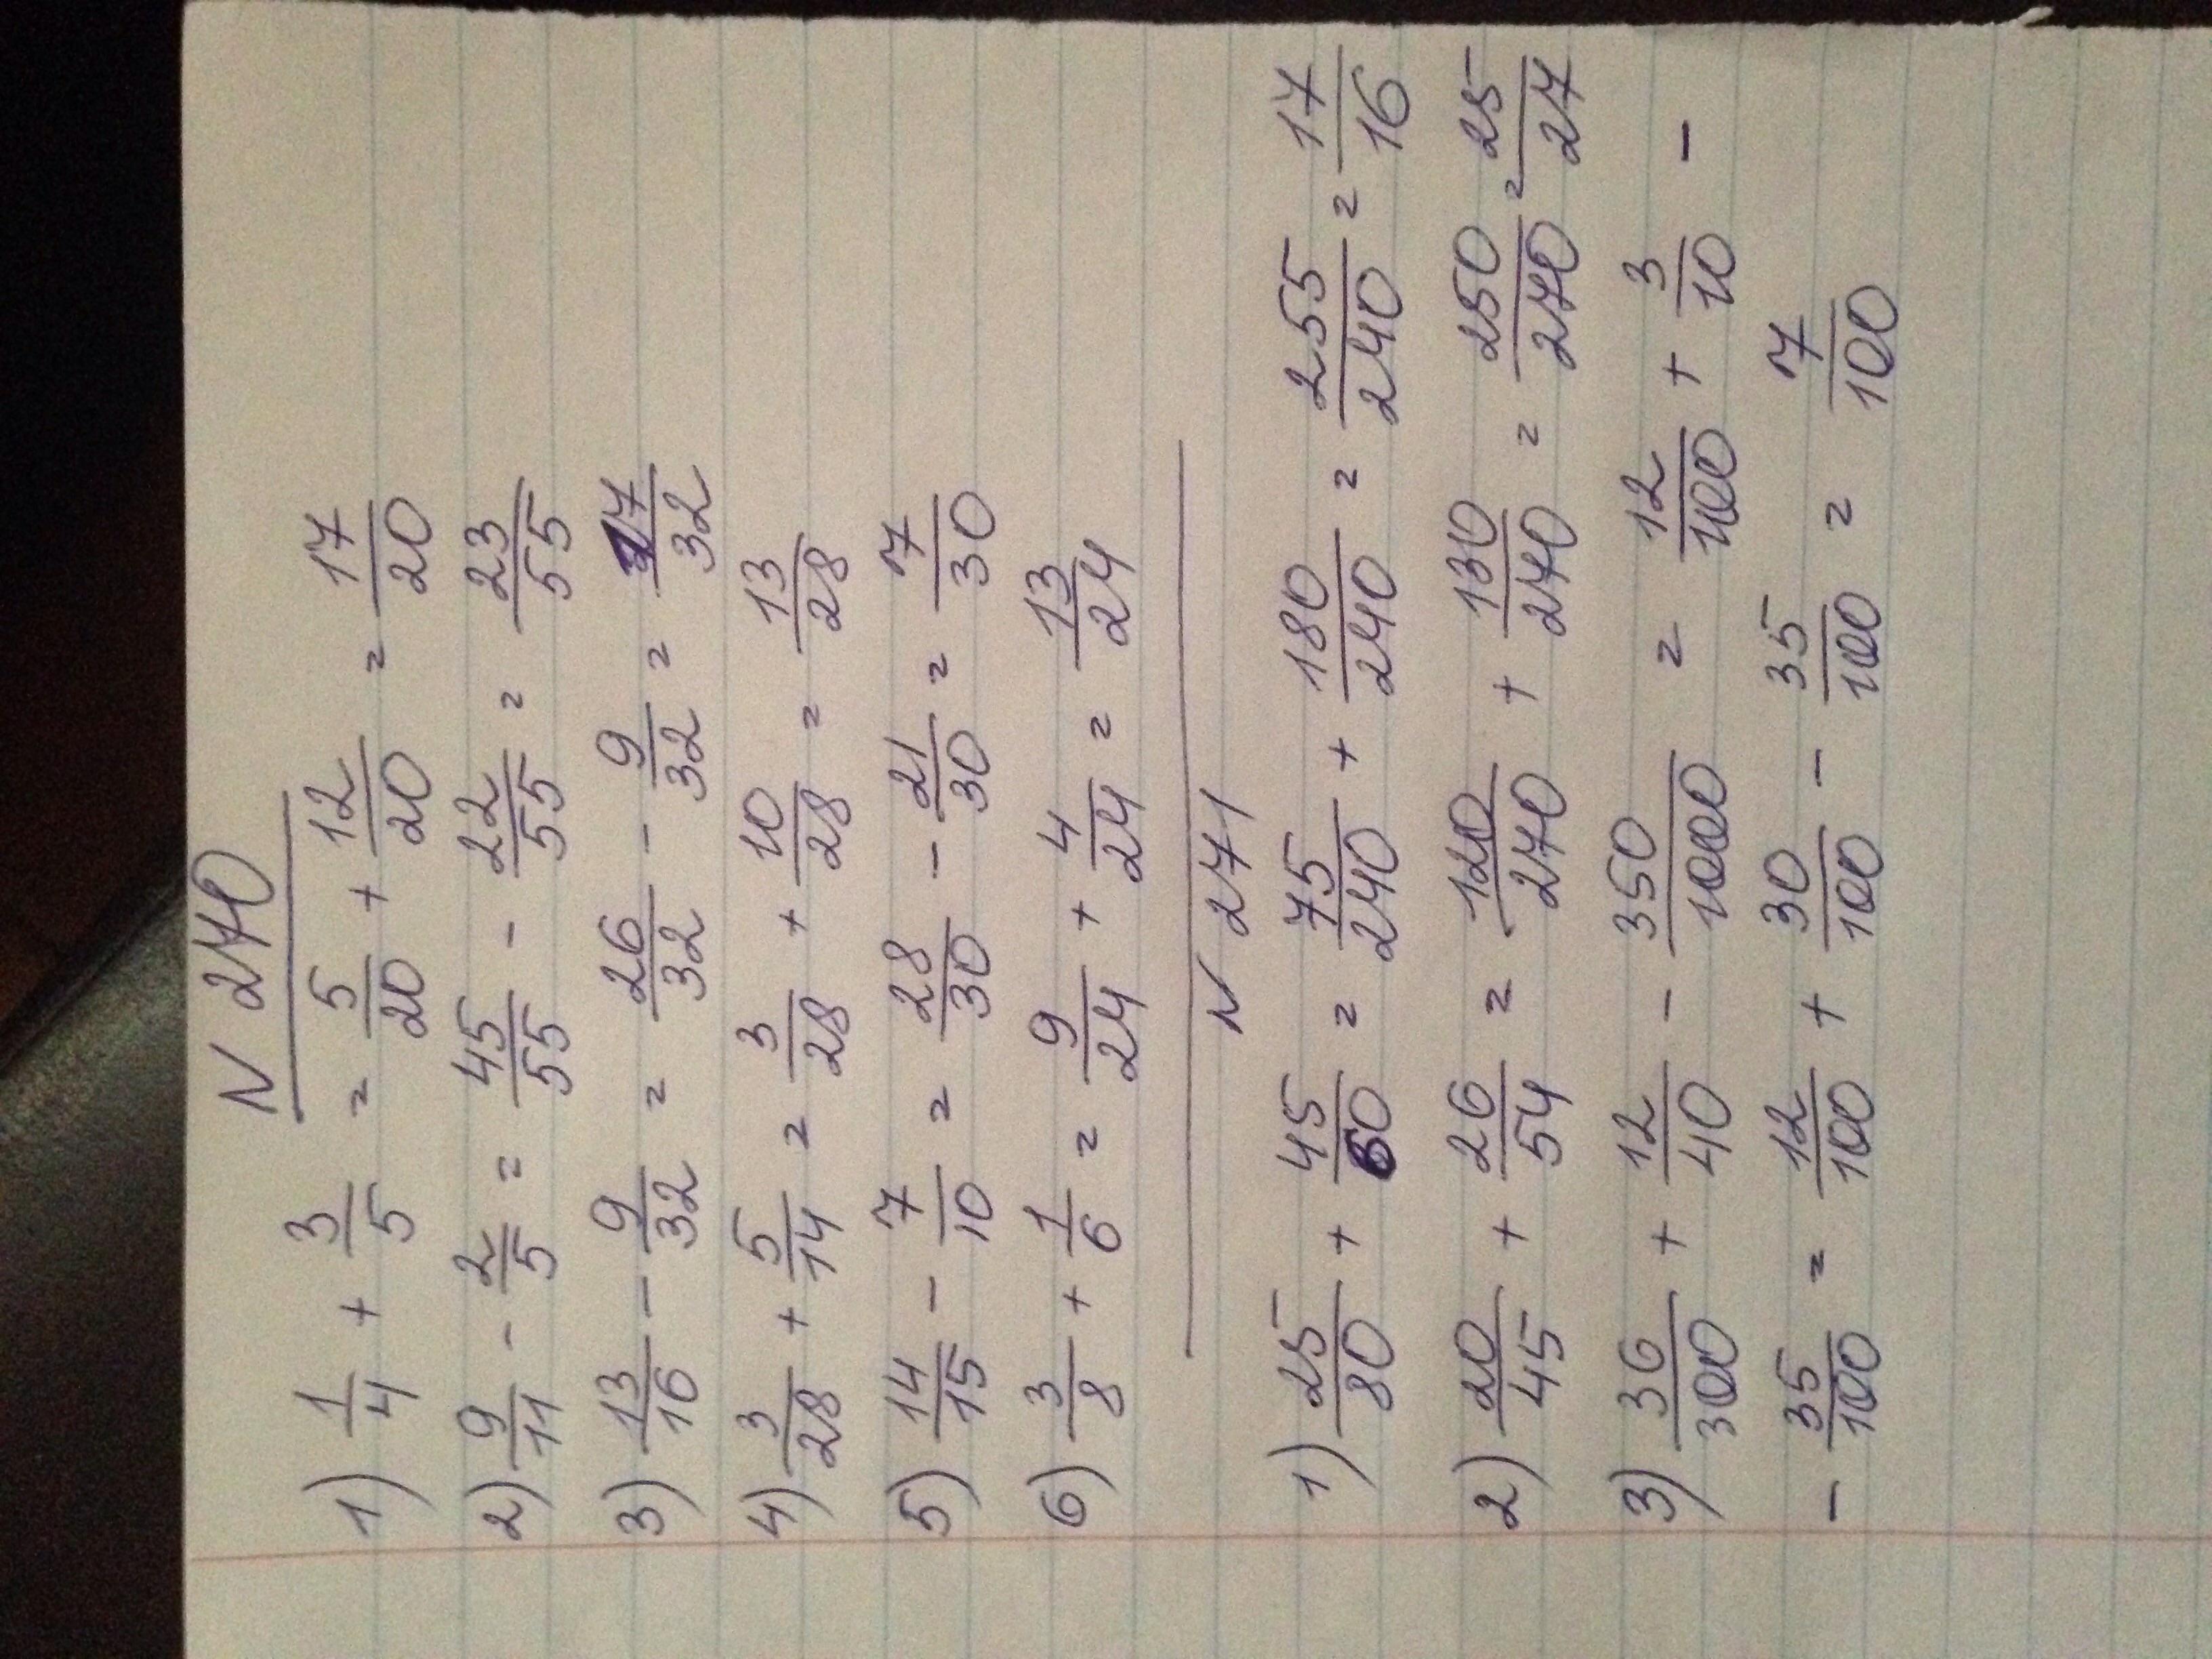 N 270
1) 1/4 + 3/5 = 5/20 + 12/20 = 17/20
2) 9/11 - 2/5 = 45/55 - 22/55 = 23/55
3) 13/16 - 9/32 = 26/32 - 9/32 = 17/32
4) 3/28 + 5/14 = 3/28 + 10/28 = 13/28
5) 14/15 - 7/10 = 28/30 - 21/30 = 7/30
6) 3/8 + 1/6 = 9/24 + 4/24 = 13/24
N 271
1) 25/80 + 45/60 = 75/240 + 180/240 = 255/240 = 17/16
2) 20/45 + 26/54 = 120/270 + 130/270 = 250/270 = 25/27
3) 36/300 + 12/40 - 350/1000 = 12/100 + 3/10 -
- 35/100 = 12/100 + 30/100 - 35/100 = 7/100